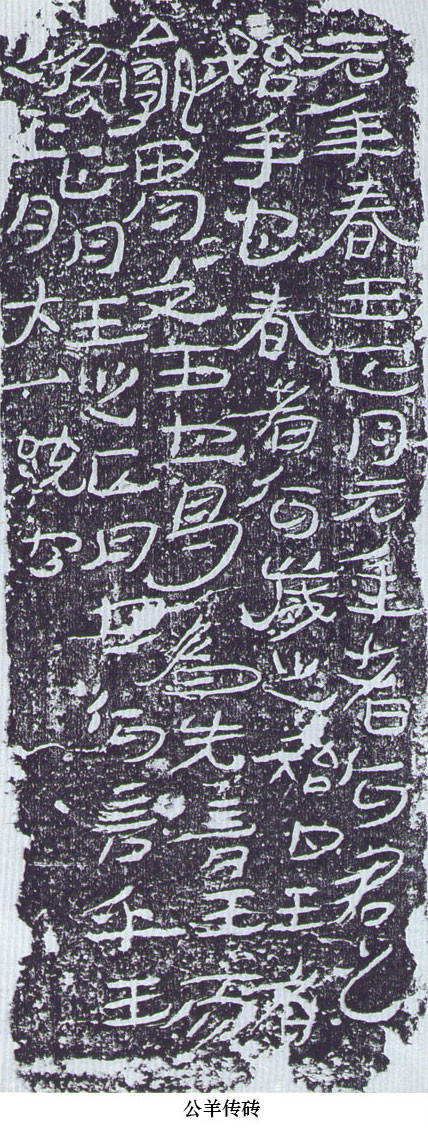 元年春王正月元年者何君之
始年也春者何歲之始也王者
孰胃文王也曷為先言王而
後正月王之正月也何言乎王
之正月大一統也
公羊传砖